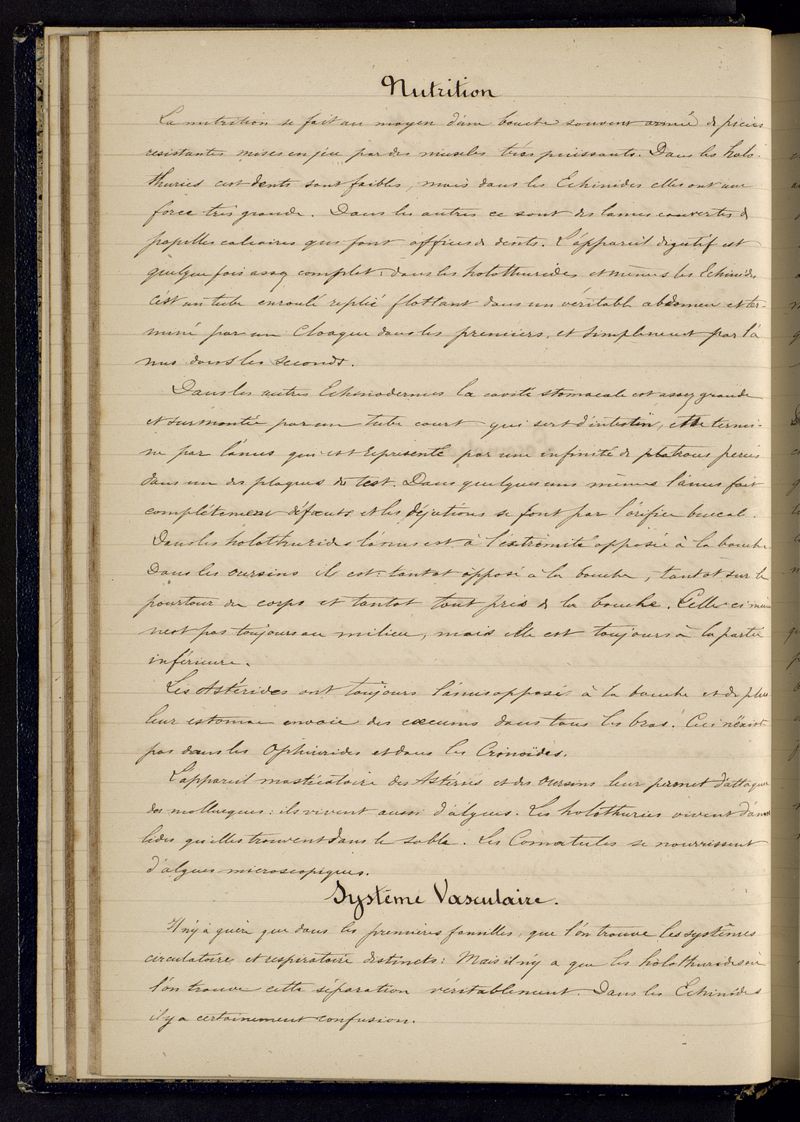 Nutrition
La nutrition se fait au moyen d'une bouche souvent armée de pièces
resistantes mises en jeu par des muscles très puissants. Dans les holo-
thuries ces dents sont faibles, mais dans les Echinides elles ont une
force très grande. Dans les autres ce sont des lames couvertes de
papilles calcaires qui font offices de dents. L'appareil digestif est
quelque fois assez complet; dans les holothurides et mêmes les Echinides
c'est un tube enroulé replié flottant dans un véritable abdomen et ter-
miné par un Cloaque dans les premiers, et simplement par l'a
nus dans les seconds.
Dans les autres Echinodermes la cavité stomacale est assez grande
et surmontée par un tube court qui sert d'intestin, et se termi-
ne par l'anus qui est représenté par une infinité de percés
dans un des plaques du test. Dans quelques uns mêmes l'anus fait
complètement défauts et les déjections se font par l'orifice buccal.
Dans les holothurides l'anus est à l'extrémité opposée à la bouche
Dans les oursins il est tantot opposé à la bouche, tantot sur le
pourtour du corps et tantot tout près de la bouche. Celle ci même
n'est pas toujours au milieu, mais elle est toujours à la partie
inférieure.
Les Astérides ont toujours l'anus opposé à la bouche et de plus
leur estomac envoie des cœcums dans tous les bras. Ceci n'existe
pas dans les Ophiurides et dans les Crinoïdes.
L'appareil masticatoire des Astéries et des Oursins leur permet d'attaquer
des mollusques: ils vivent aussi d'algues. Les holothuries vivent d'anné
lides qu'elles trouvent dans le sable. Les Comatules se nourrissent
d'algues microscopiques.
Système Vasculaire.
Il n'y a guère que dans les premieres familles, que l'on trouve les systèmes
circulatoire et respiratoire distincts: Mais il n'y a que les holothurides où
l'on trouve cette séparation véritablement. Dans les Echinides
il y a certainement confusion.